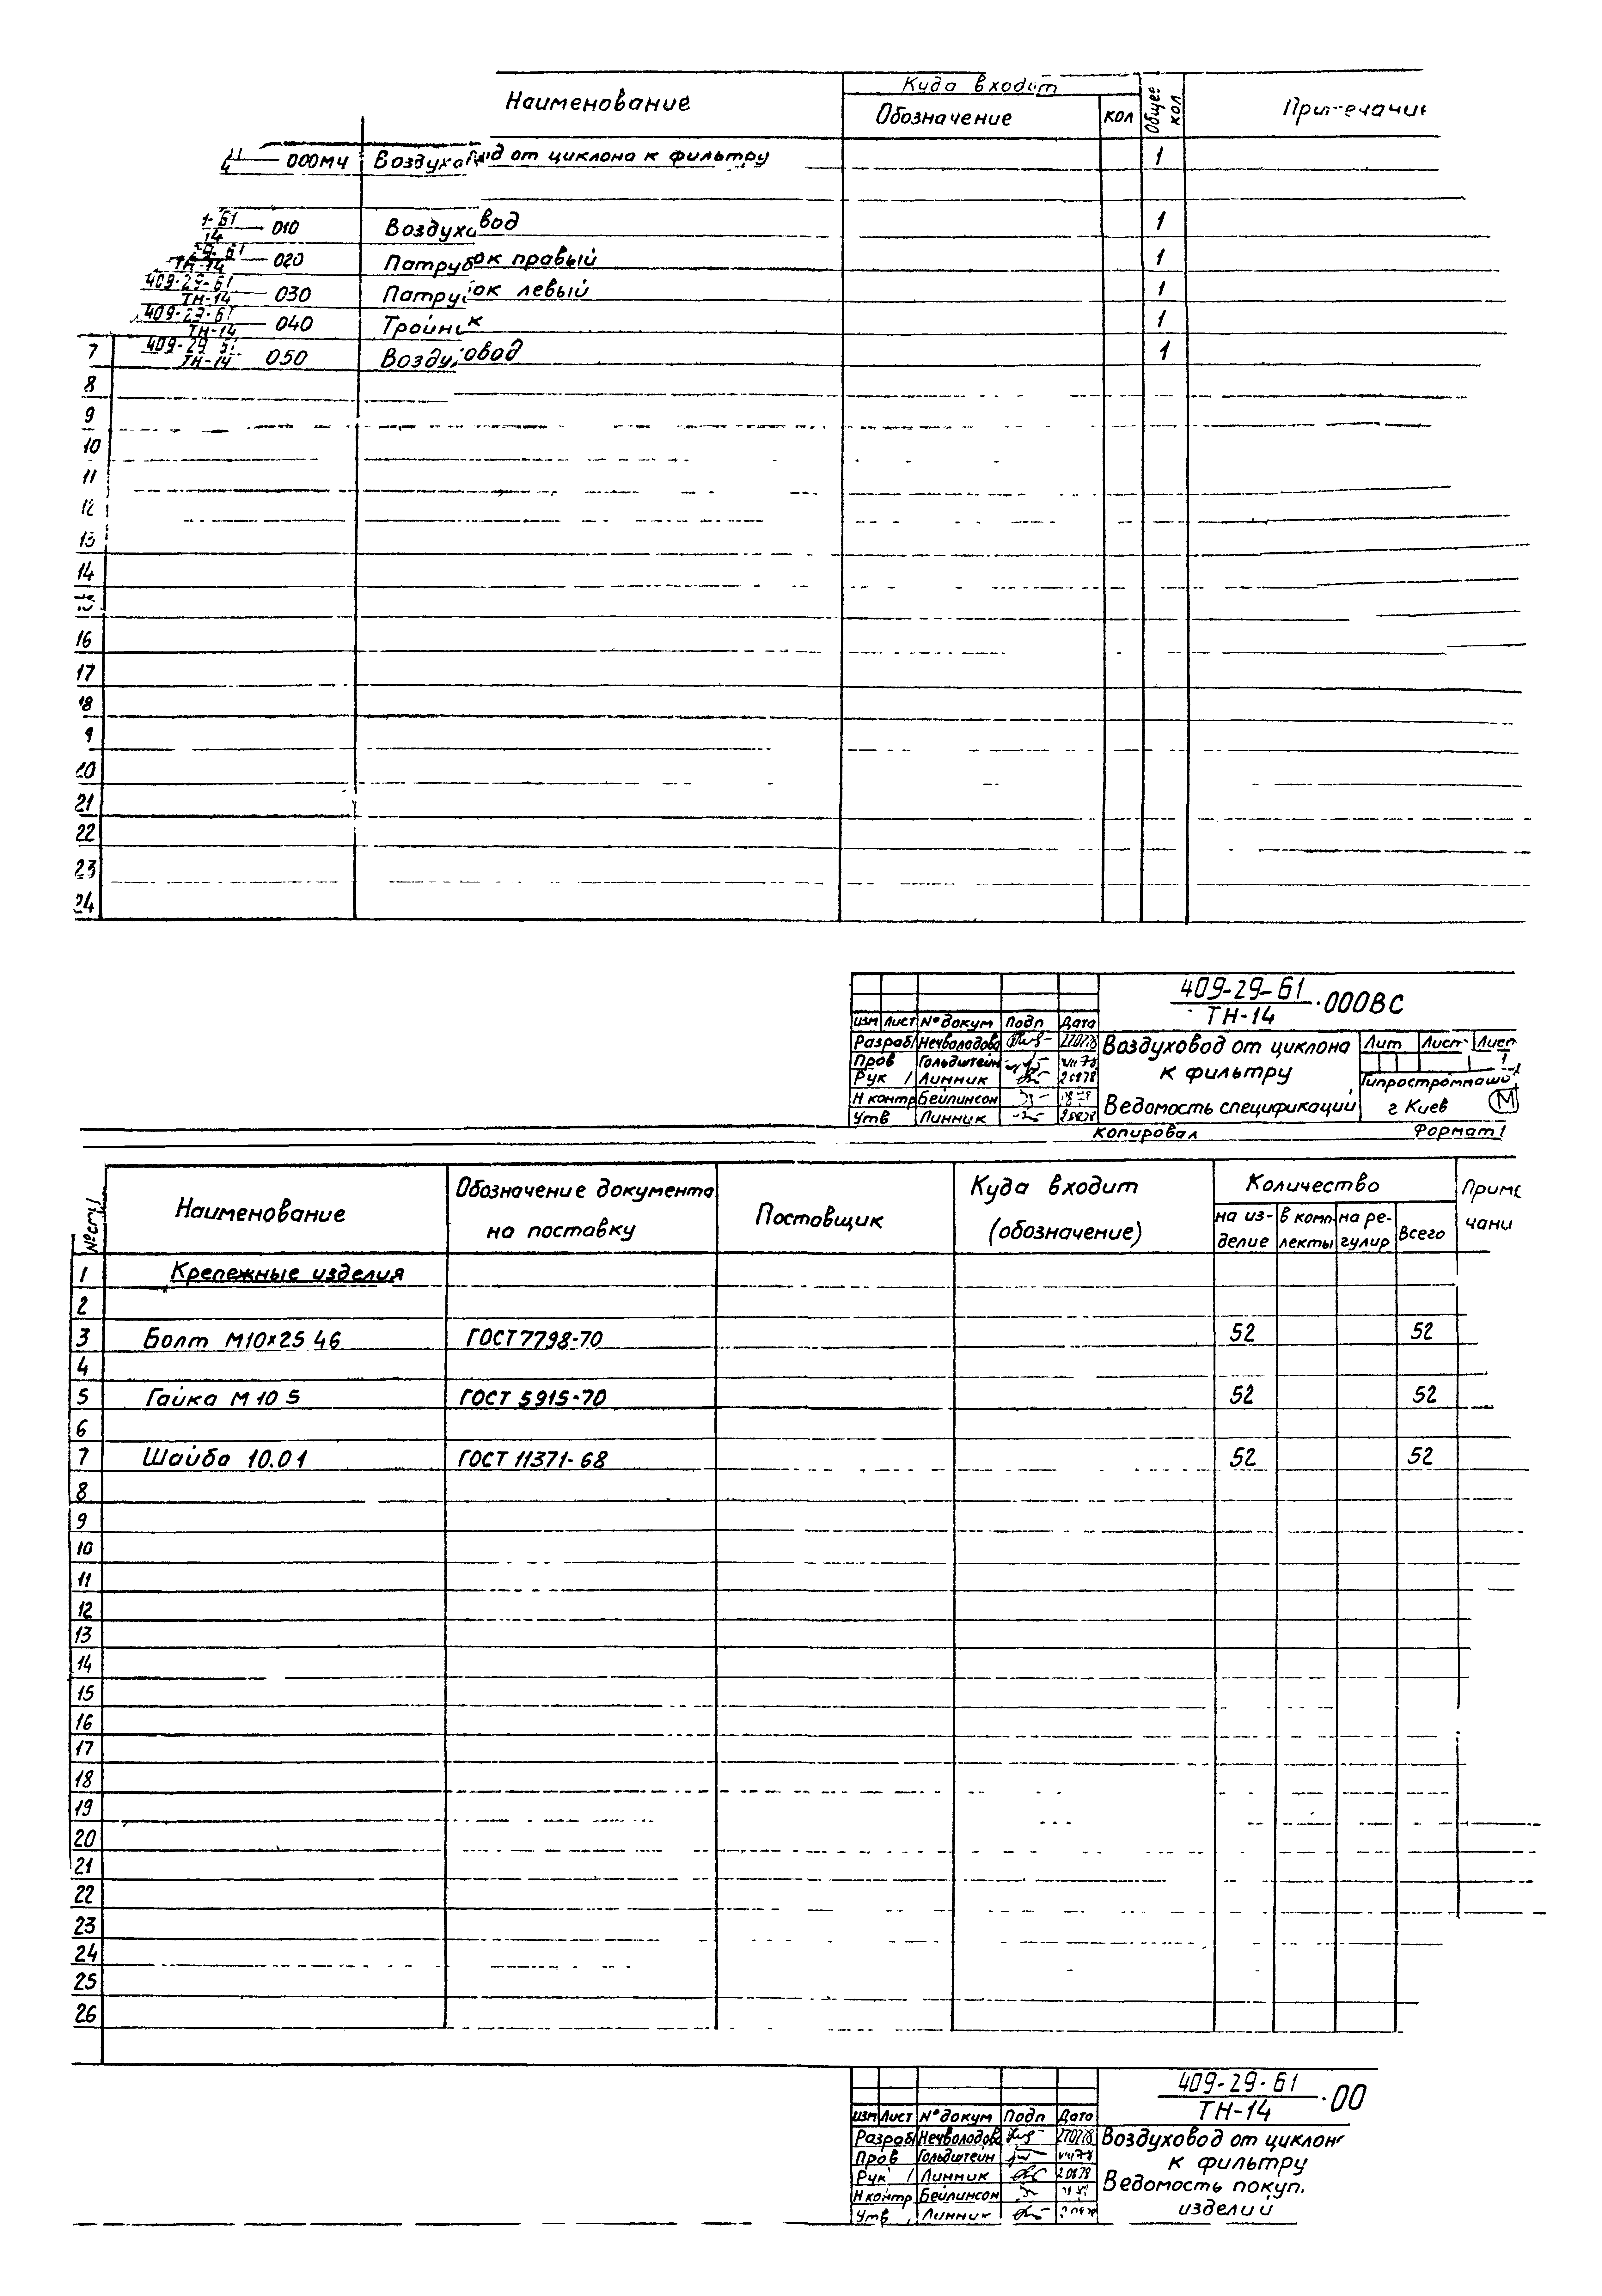 Наименование
Куда входит
Обозначение
кол
Общее кол
Примечание
000МЧ Воздуховод от циклона к фильтру 1
010 Воздуховод 1
020 Патрубок правый 1
409-29-61
ТН-14 030 Патрубок левый 1
409-29-61
ТН-14 040 Тройник 1
7 409-29-61
ТН-14 050 Воздуховод 1
8
9
10
11
12
13
14
15
16
17
18
20
21
22
23
24
409-29-61
ТН-14
·000ВС
изм Лист № докум Подп Дата
Разраб Нечволодова
Пров Гольдштейн
Рук Линник
Н контр Бейлинсон
Утв Линник
Воздуховод от циклона
к фильтру
Ведомость спецификаций
Лит Лист Лист
1
Гипростроммаш
г Киев
М
Копировал Формат
№ стр
Наименование
Обозначение документа
на поставку
Поставщик
Куда входит
(обозначение)
Количество
на из-
делие
в комп
лекты
на ре-
гулир
Всего
Приме
чани
1 Крепежные изделия
2
3 Болт М10×25 46 ГОСТ 7798-70 52 52
4
5 Гайка М 10 5 ГОСТ 5915-70 52 52
6
7 Шайба 10.01 ГОСТ 11371-68 52 52
8
9
10
11
12
13
14
15
16
17
18
19
20
21
22
23
24
25
26
409-29-61
ТН-14
·00
изм Лист № докум Подп Дата
Разраб Нечволодова
Пров Гольдштейн
Рук Линник
Н контр Бейлинсон
Утв Линник
Воздуховод от циклона
к фильтру
Ведомость покуп.
изделий